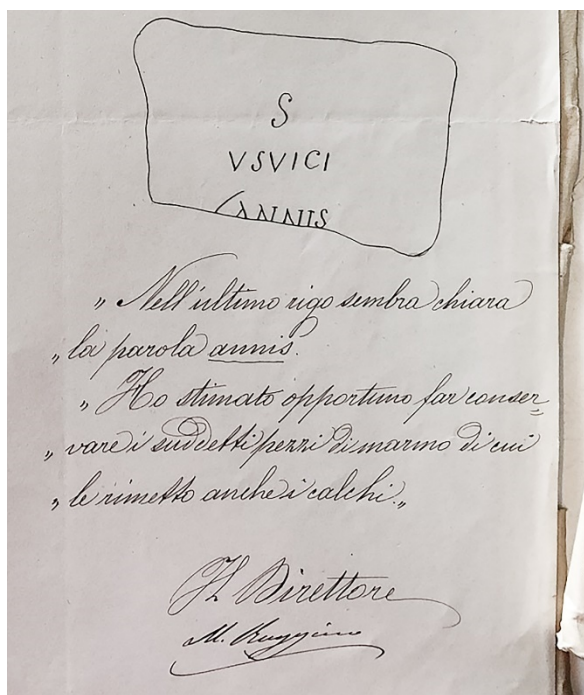 S
VSVICI
ANNIS
„ Nell'ultimo rigo sembra chiara
„ la parola annis.
„ Ho stimato opportuno far conser=
„ vare i suddetti pezzi di marmo di cui
„ le rimetto anche i calchi. „
Il Direttore
M. Ruggiero